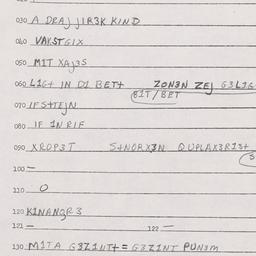 030 A DRAJ JIR3K KIND
040 VAKSTGIX
050 M1T XAJ3S
060 L1G+ IN D1 BET+ ZON3N ZEJ G3L1G
B1T/BET
070 IFS+TEJN
080 IF 1N RIF
090 XROP3T S+NORX3N QUPLAX3R13+
100 —
110 O
120 K1NANQR3
121 — 122 —
130 M1TA G3Z1NT+ = G3Z1NT PUN3M